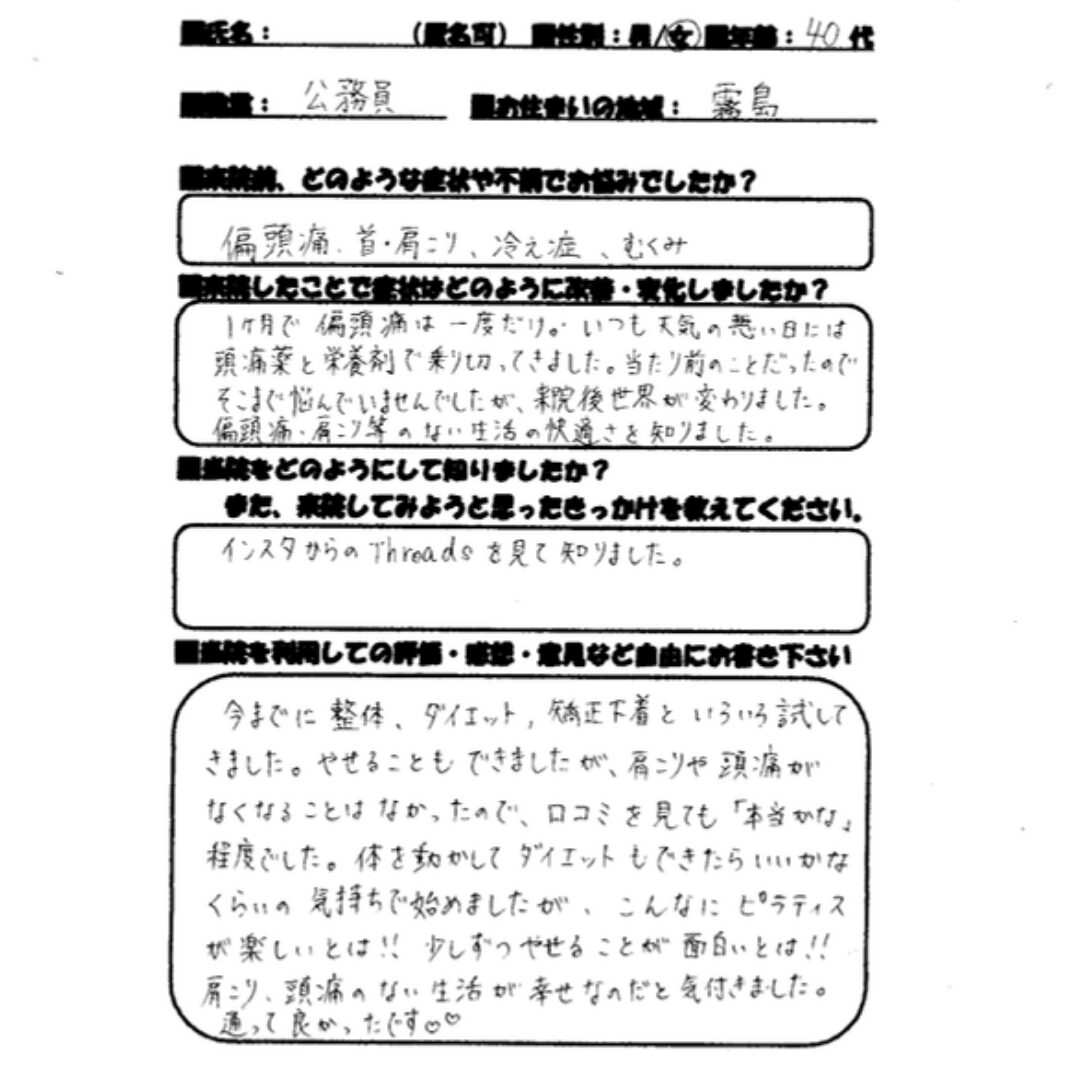 ■氏名： （匿名可） ■性別：男/女 ■年齢：40代
■職業： 公務員 ■お住まいの地域： 霧島
■来院前、どのような症状や不調でお悩みでしたか？
偏頭痛、首・肩こり、冷え症、むくみ
■来院したことで症状はどのように改善・変化しましたか？
1ヶ月で偏頭痛は一度だけ。いつも天気の悪い日には
頭痛薬と栄養剤で乗り切ってきました。当たり前のことだったので
そこまで悩んでいませんでしたが、来院後世界が変わりました。
偏頭痛・肩こり等のない生活の快適さを知りました。
■当院をどのようにして知りましたか？
また、来院してみようと思ったきっかけを教えてください。
インスタからのThreadsを見て知りました。
■当院を利用しての評価・感想・意見など自由にお書き下さい
今までに整体、ダイエット，矯正下着といろいろ試して
きました。やせることもできましたが、肩こりや頭痛が
なくなることはなかったので、口コミを見ても「本当かな」
程度でした。体を動かしてダイエットもできたらいいかな
くらいの気持ちで始めましたが、こんなにピラティス
が楽しいとは!! 少しずつやせることが面白いとは!!
肩こり、頭痛のない生活が幸せなのだと気付きました。
通って良かったです♡♡